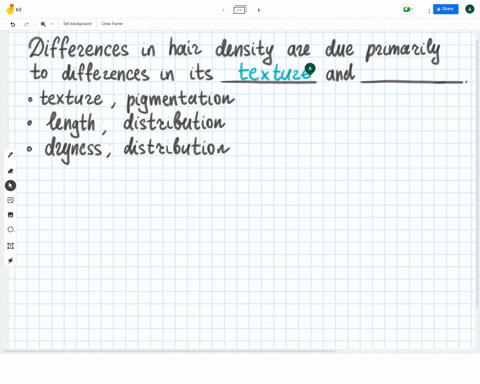 63
Set background
Clear frame
Share
A
Differences in hair density are due primarily
to differences in its texture and __________.
A
• texture ; pigmentation
• length ; distribution
• dryness ; distribution